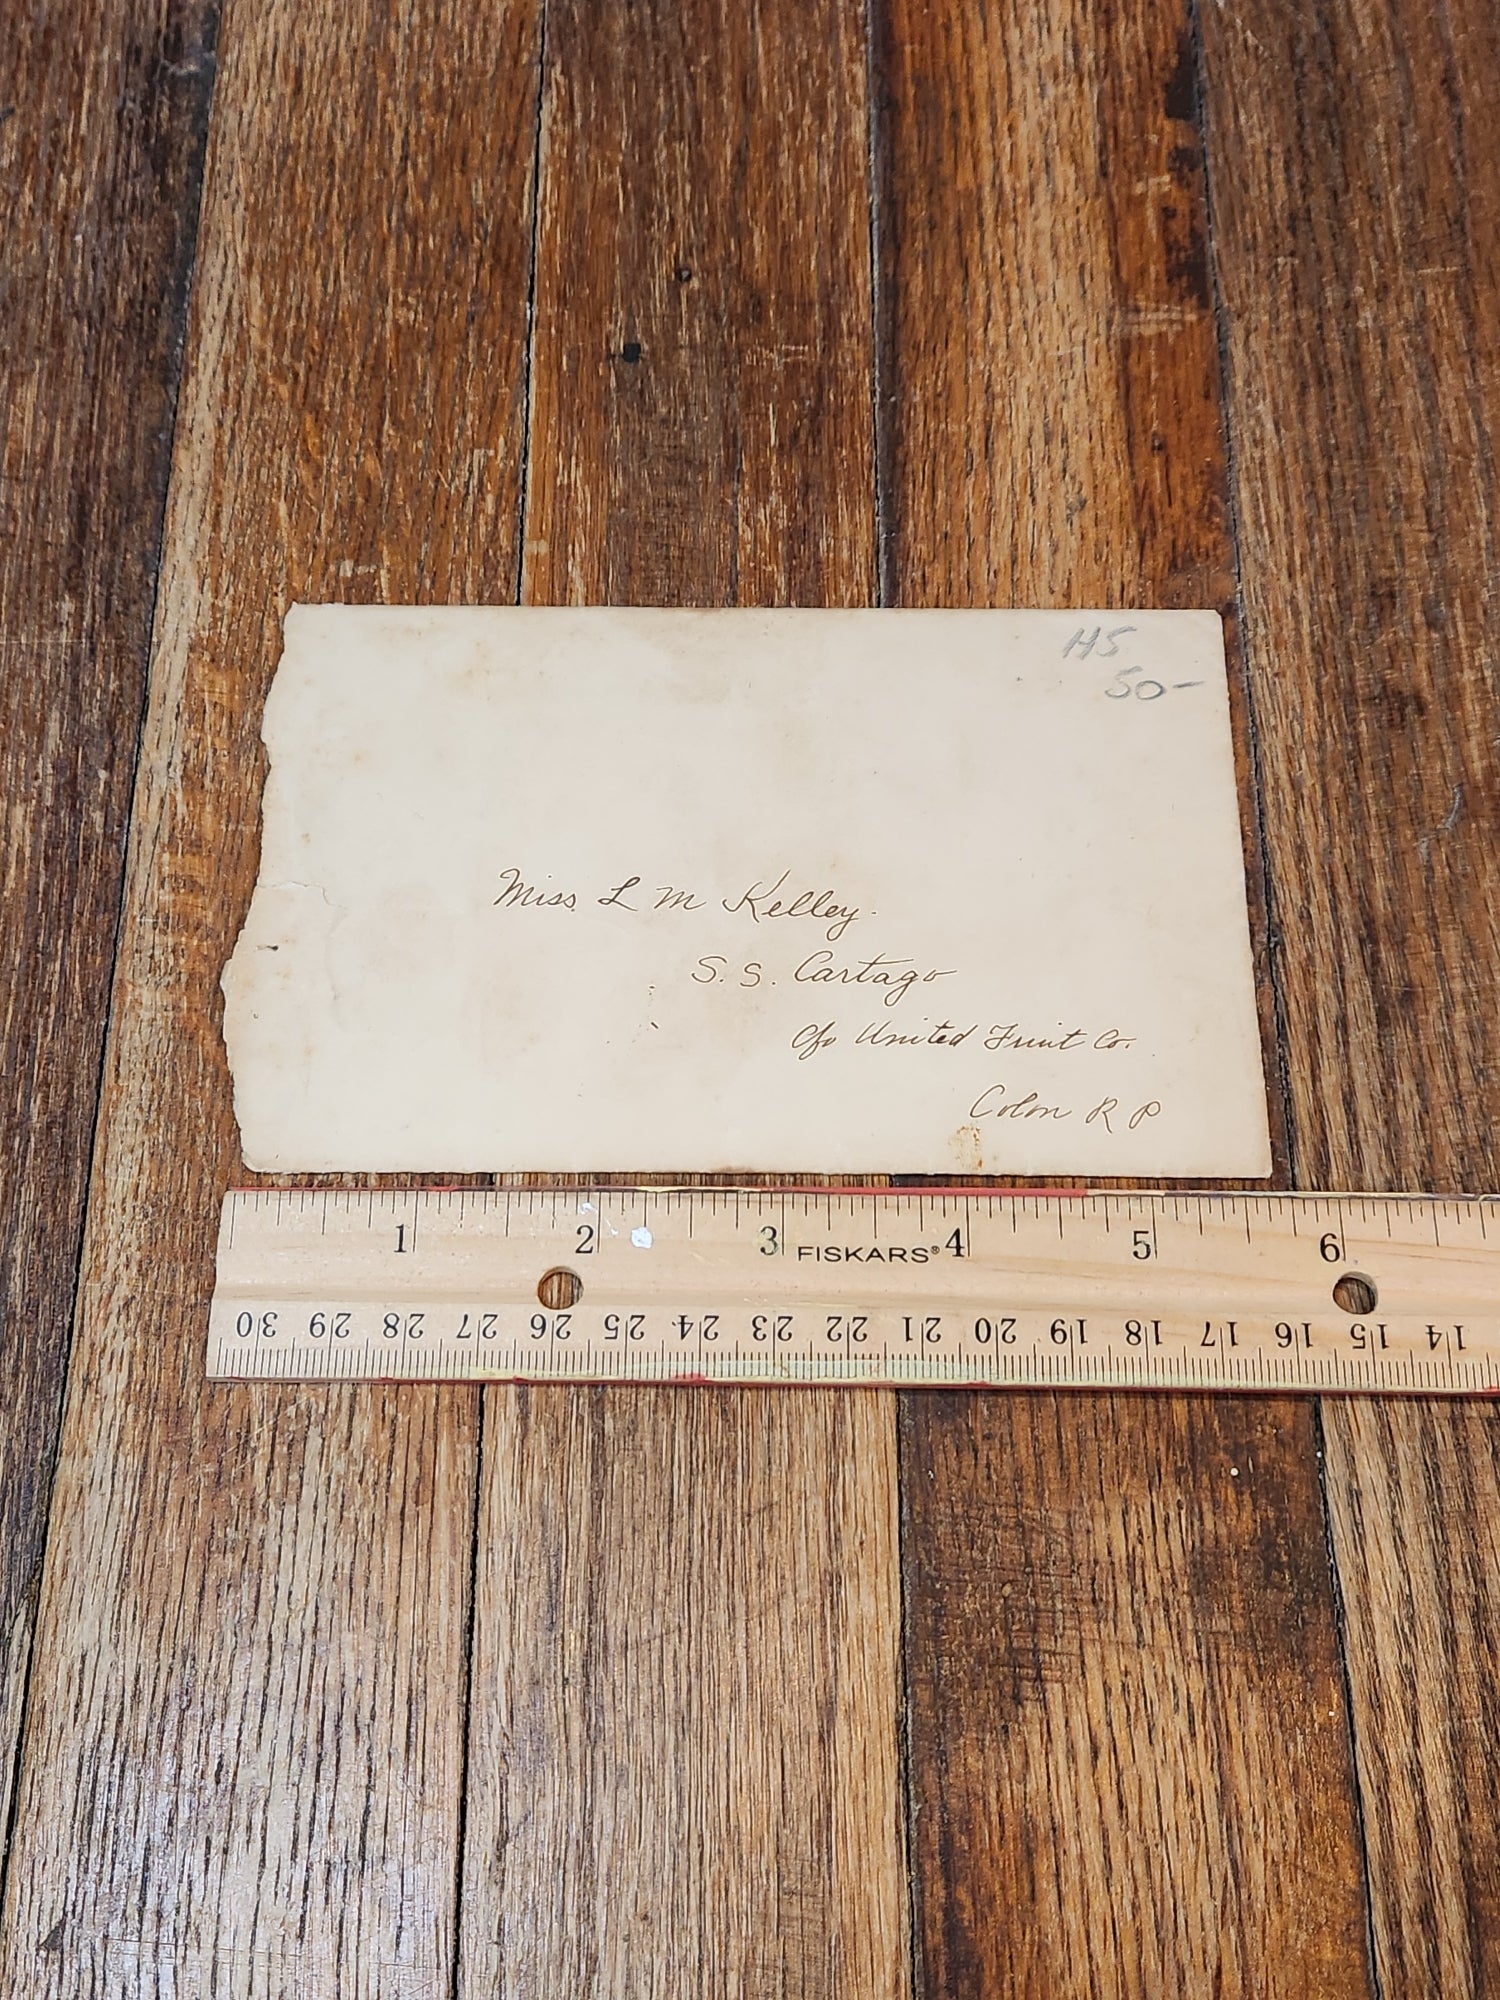 HS
50-
Miss L M Kelley.
S. S. Cartago
c/o United Fruit Co.
Colon R P
1 2 3 FISKARS® 4 5 6
30 29 28 27 26 25 24 23 22 21 20 19 18 17 16 15 14